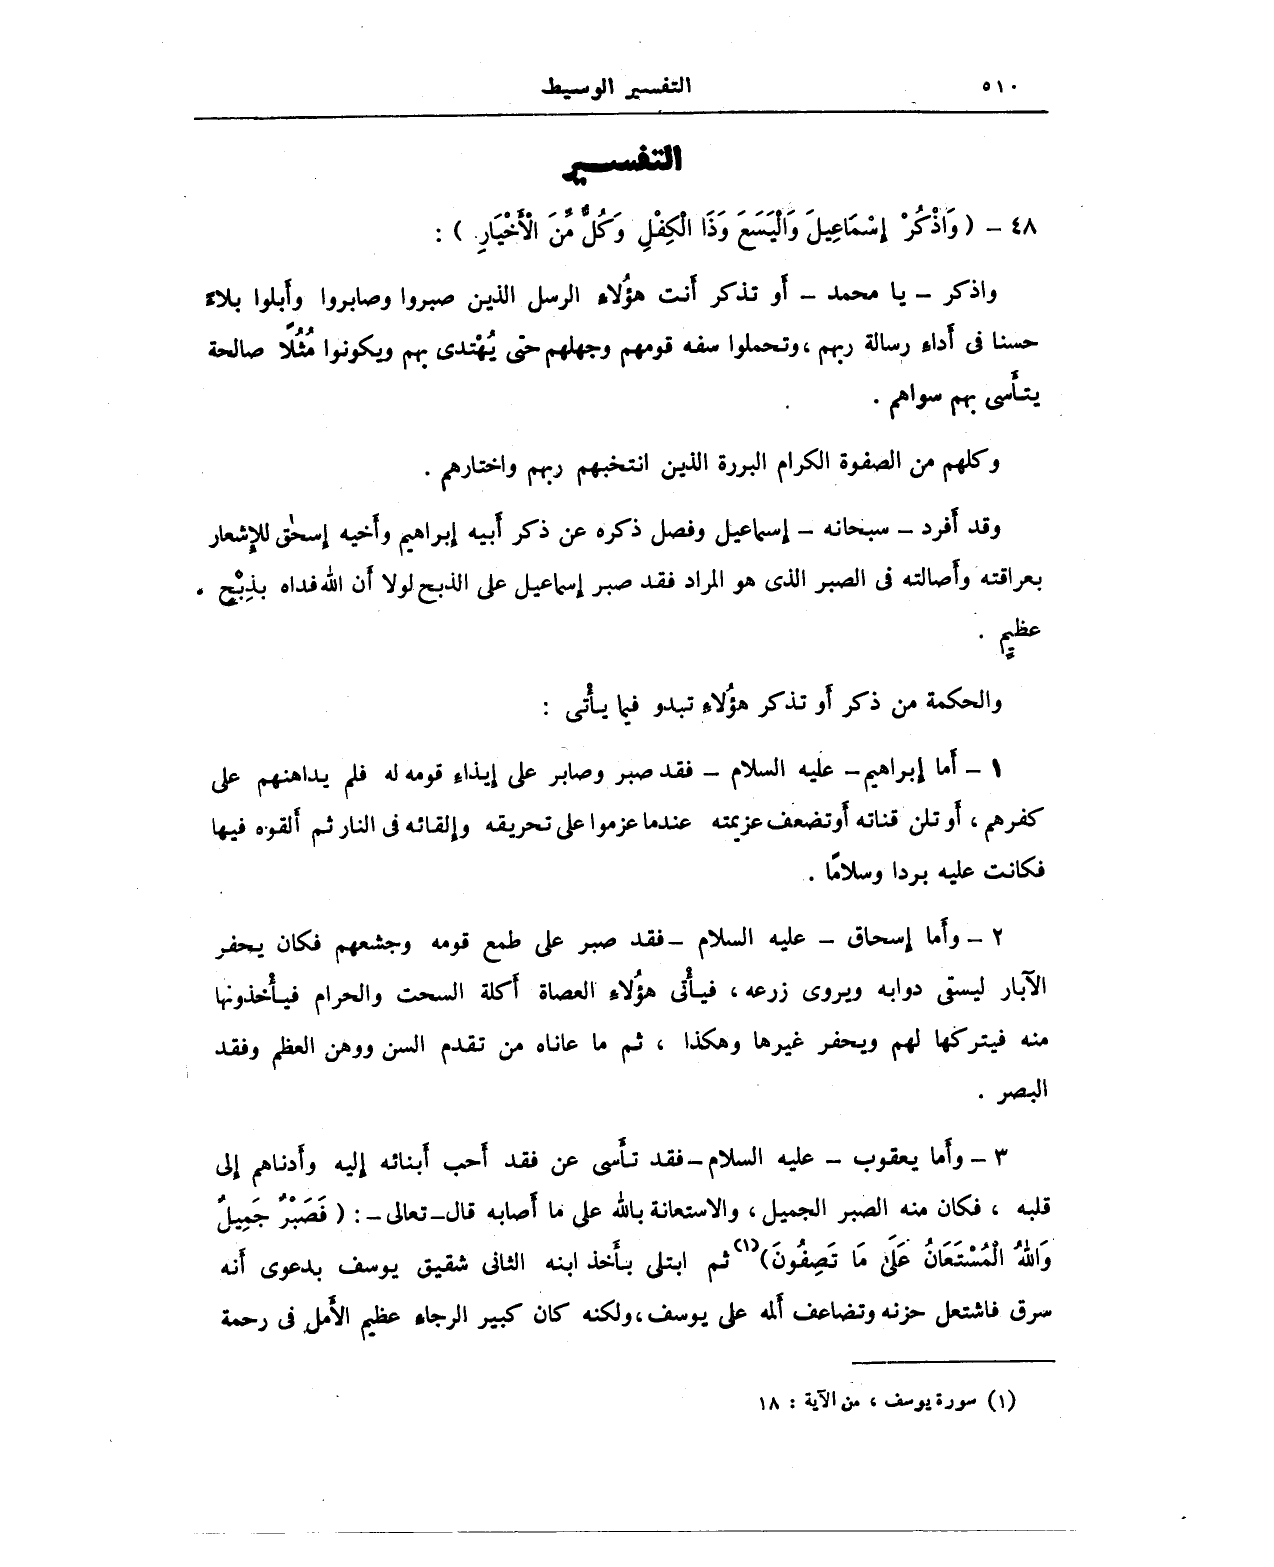 ٥١٠ التفسير الوسيط
التفسير
٤٨ – ( وَاذْكُرْ إِسْمَاعِيلَ وَالْيَسَعَ وَذَا الْكِفْلِ وَكُلٌّ مِّنَ الْأَخْيَارِ ) :
واذكر – يا محمد – أو تذكر أنت هؤُلاء الرسل الذين صبروا وصابروا وأبلوا بلاءً
حسنا فى أداء رسالة ربهم ، وتحملوا سفه قومهم وجهلهم حتى يُهْتدى بهم ويكونوا مُثُلًا صالحة
يتأَسى بهم سواهم .
وكلهم من الصفوة الكرام البررة الذين انتخبهم ربهم واختارهم .
وقد أفرد – سبحانه – إسماعيل وفصل ذكره عن ذكر أبيه إبراهيم وأخيه إسحٰق للإشعار
بعراقته وأصالته فى الصبر الذى هو المراد فقد صبر إسماعيل على الذبح لولا أن الله فداه بذِبْحٍ .
عظيمٍ .
والحكمة من ذكر أو تذكر هؤُلاءِ تبدو فيما يأْتى :
١ – أما إبراهيم – عليه السلام – فقد صبر وصابر على إيذاءِ قومه له فلم يداهنهم على
كفرهم ، أو تلن قناته أوتضعف عزيمته عندما عزموا على تحريقه وإلقائه فى النار ثم ألقوه فيها
فكانت عليه بردا وسلامًا .
٢ – وأما إسحاق – عليه السلام – فقد صبر على طمع قومه وجشعهم فكان يحفر
الآبار ليستى دوابه ويروى زرعه ، فيأْتى هؤُلاءِ العصاة أكلة السحت والحرام فيأْخذونها
منه فيتركها لهم ويحفر غيرها وهكذا ، ثم ما عاناه من تقدم السن ووهن العظم وفقد
البصر .
٣ – وأما يعقوب – عليه السلام – فقد تأَسى عن فقد أحب أبنائه إليه وأدناهم إلى
قلبه ، فكان منه الصبر الجميل ، والاستعانة بالله على ما أصابه قال – تعالى – : ( فَصَبْرٌ جَمِيلٌ
وَاللهُ الْمُسْتَعَانُ عَلَىٰ مَا تَصِفُونَ)(١) ثم ابتلى بأَخذ ابنه الثانى شقيق يوسف بدعوى أنه
سرق فاشتعل حزنه وتضاعف ألمه على يوسف ، ولكنه كان كبير الرجاء عظيم الأمل فى رحمة
(١) سورة يوسف ، من الآية : ١٨